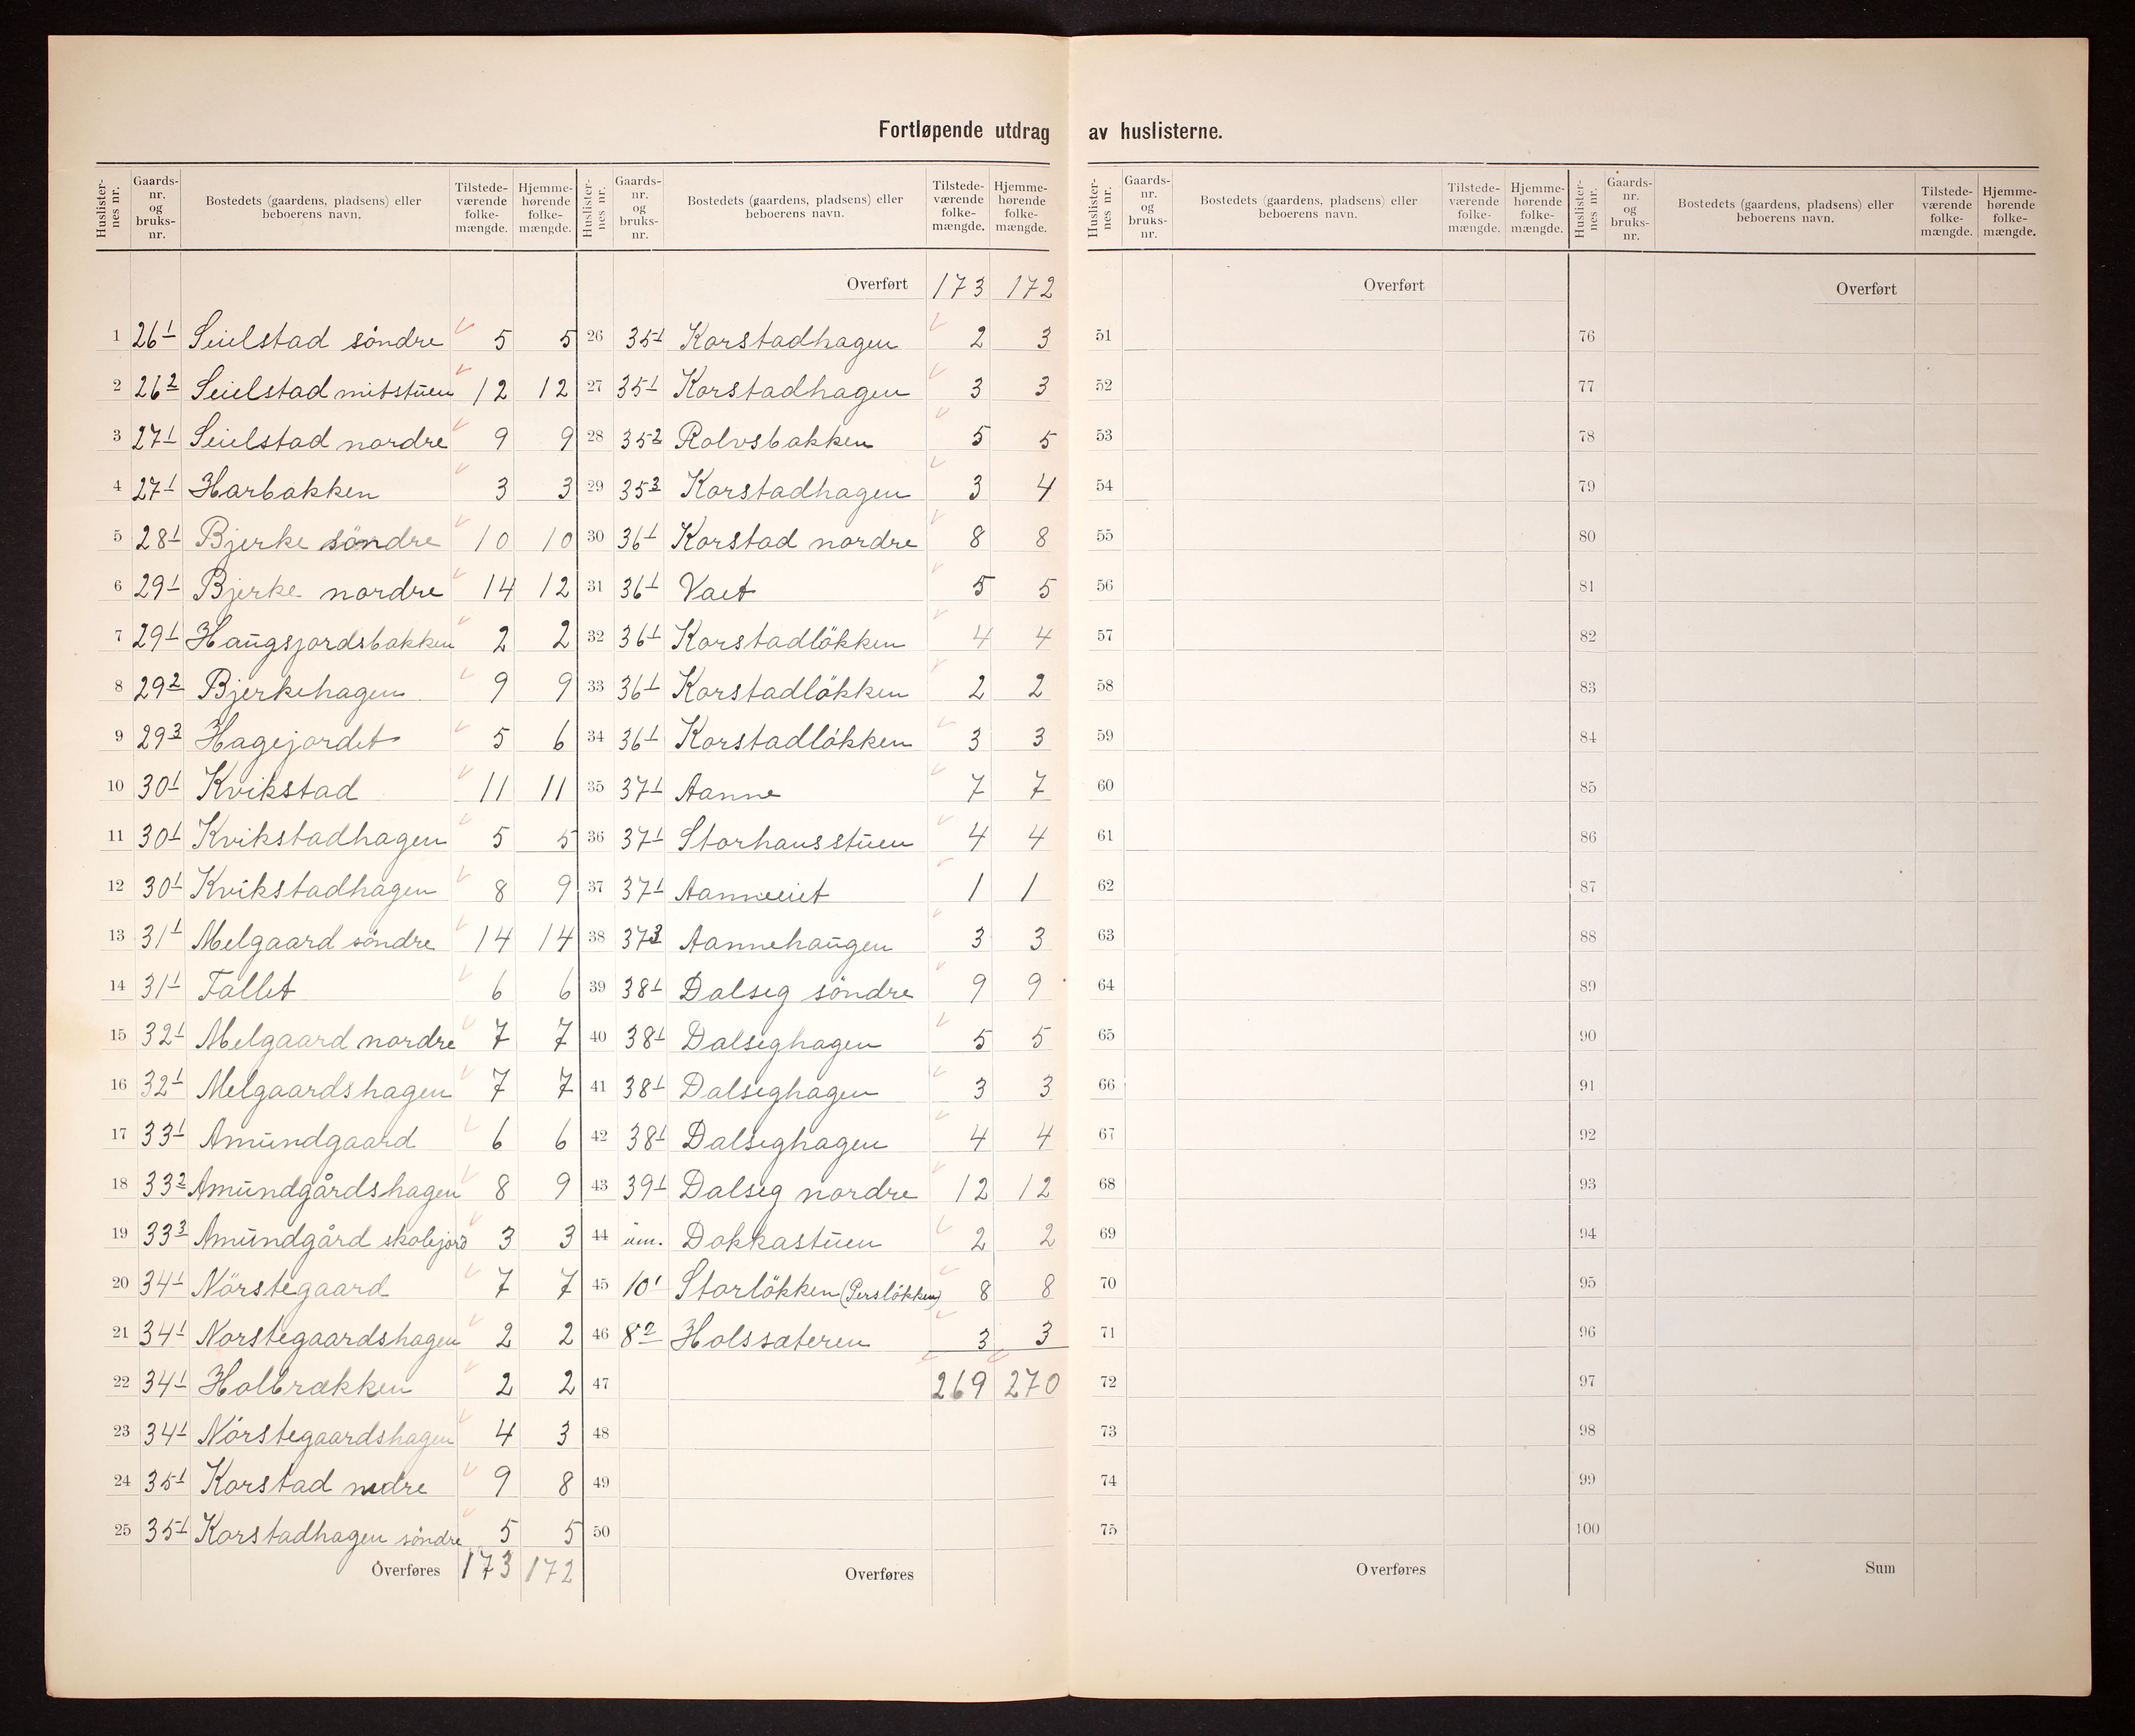 Fortløpende utdrag av huslisterne.
Huslister-nes nr. | Gaards-nr. og bruks-nr. | Bostedets (gaardens, pladsens) eller beboerens navn. | Tilstede-værende folke-mængde. | Hjemme-hørende folke-mængde.
1 26 1 Seielstad söndre 5 5
2 26 2 Seielstad mitstuen 12 12
3 27 1 Seielstad nordre 9 9
4 27 1 Harbakken 3 3
5 28 1 Bjerke söndre 10 10
6 29 1 Bjerke nordre 14 12
7 29 1 Haugsjordsbakken 2 2
8 29 2 Bjerkehagen 9 9
9 29 3 Hagejordet 5 6
10 30 1 Kvikstad 11 11
11 30 1 Kvikstadhagen 5 5
12 30 1 Kvikstadhagen 8 9
13 31 1 Melgaard söndre 14 14
14 31 1 Fallet 6 6
15 32 1 Melgaard nordre 7 7
16 32 1 Melgaardshagen 7 7
17 33 1 Amundgaard 6 6
18 33 2 Amundgårdshagen 8 9
19 33 3 Amundgård skolejord 3 3
20 34 1 Nörstegaard 7 7
21 34 1 Norstegaardshagen 2 2
22 34 1 Holbrækken 2 2
23 34 1 Nörstegaardshagen 4 3
24 35 1 Korstad nedre 9 8
25 35 1 Korstadhagen söndre 5 5
Overføres 173 172
Huslister-nes nr. | Gaards-nr. og bruks-nr. | Bostedets (gaardens, pladsens) eller beboerens navn. | Tilstede-værende folke-mængde. | Hjemme-hørende folke-mængde.
Overført 173 172
26 35 1 Korstadhagen 2 3
27 35 1 Korstadhagen 3 3
28 35 2 Rolvsbakken 5 5
29 35 3 Korstadhagen 3 4
30 36 1 Korstad nordre 8 8
31 36 1 Vaet 5 5
32 36 1 Korstadlökken 4 4
33 36 1 Korstadlökken 2 2
34 36 1 Korstadlökken 3 3
35 37 1 Aanne 7 7
36 37 1 Storhansstuen 4 4
37 37 1 Aanneeiet 1 1
38 37 3 Aannehaugen 3 3
39 38 1 Dalseg söndre 9 9
40 38 1 Dalseghagen 5 5
41 38 1 Dalseghagen 3 3
42 38 1 Dalseghagen 4 4
43 39 1 Dalseg nordre 12 12
44 um. Dokkastuen 2 2
45 10 1 Storlökken (Perslökken) 8 8
46 8 2 Holssæteren 3 3
47 269 270
48
49
50
Overføres
Huslister-nes nr. | Gaards-nr. og bruks-nr. | Bostedets (gaardens, pladsens) eller beboerens navn. | Tilstede-værende folke-mængde. | Hjemme-hørende folke-mængde.
Overført
51
52
53
54
55
56
57
58
59
60
61
62
63
64
65
66
67
68
69
70
71
72
73
74
75
Overføres
Huslister-nes nr. | Gaards-nr. og bruks-nr. | Bostedets (gaardens, pladsens) eller beboerens navn. | Tilstede-værende folke-mængde. | Hjemme-hørende folke-mængde.
Overført
76
77
78
79
80
81
82
83
84
85
86
87
88
89
90
91
92
93
94
95
96
97
98
99
100
Sum